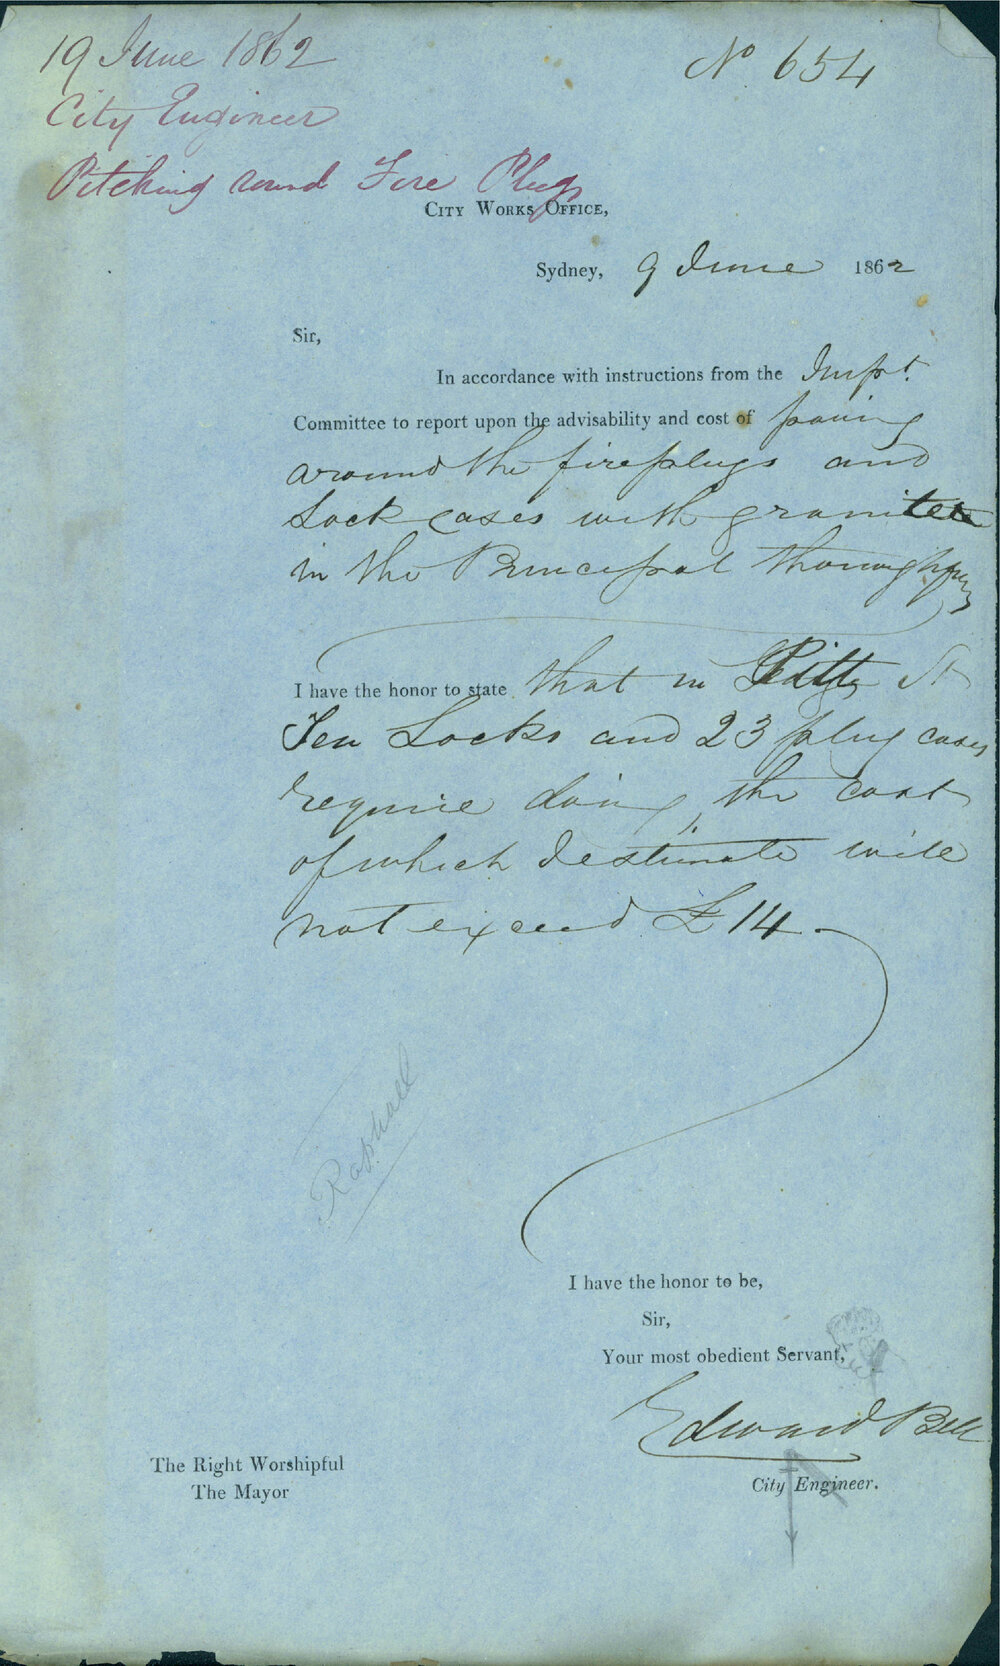 19 June 1862
No 654
City Engineer
Pitching round Fire Plugs
CITY WORKS OFFICE,
Sydney, 9 June 1862
Sir,
In accordance with instructions from the Impt.
Committee to report upon the advisability and cost of paving
around the fireplugs and
Lock cases with granite
in the Principal thoroughfares
I have the honor to state that in Pitt St
Ten Locks and 23 plug cases
require doing, the cost
of which I estimate will
not exceed £14.-
Raphael
I have the honor to be,
Sir,
Your most obedient Servant,
Edward Bell
City Engineer.
The Right Worshipful
The Mayor